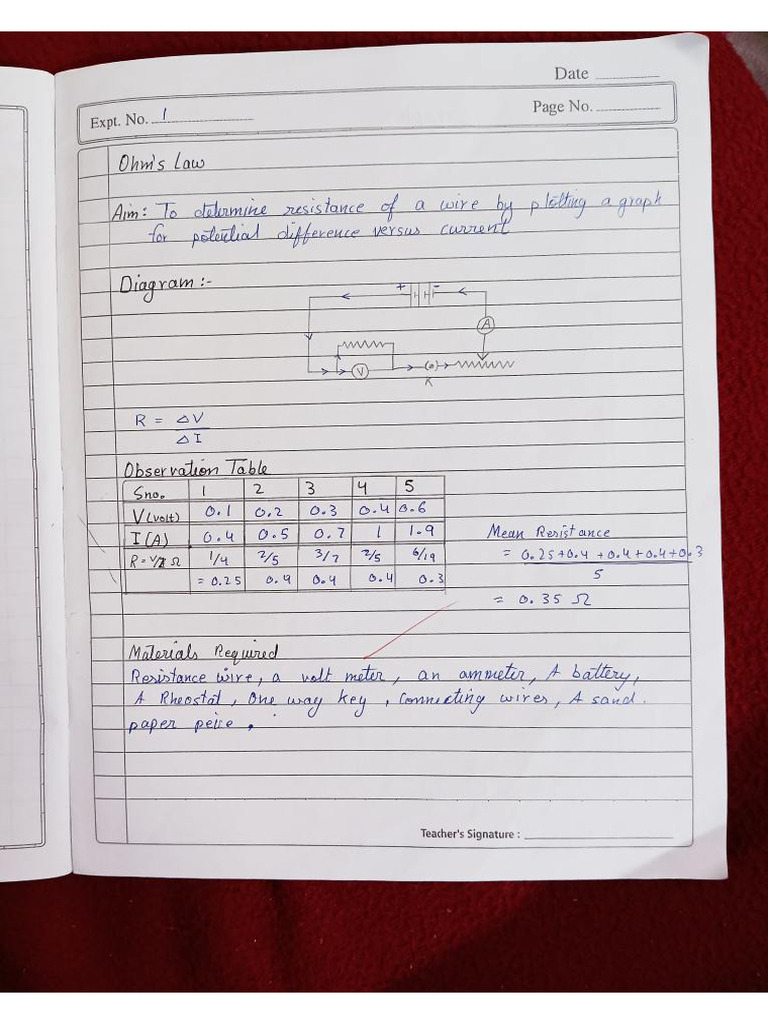 Date
Expt. No. 1
Page No.
Ohm's Law
Aim: To determine resistance of a wire by plotting a graph
for potential difference versus current
Diagram :-
+ -
A
V
K
R = ΔV
ΔI
Observation Table
Sno. 1 2 3 4 5
V(volt) 0.1 0.2 0.3 0.4 0.6
I(A) 0.4 0.5 0.7 1 1.9
R=V/I Ω 1/4 2/5 3/7 2/5 6/19
= 0.25 0.4 0.4 0.4 0.3
Mean Resistance
= 0.25+0.4+0.4+0.4+0.3
5
= 0.35 Ω
Materials Required
Resistance wire, a volt meter, an ammeter, A battery,
A Rheostat, One way key, Connecting wires, A sand.
paper peice.
Teacher's Signature :